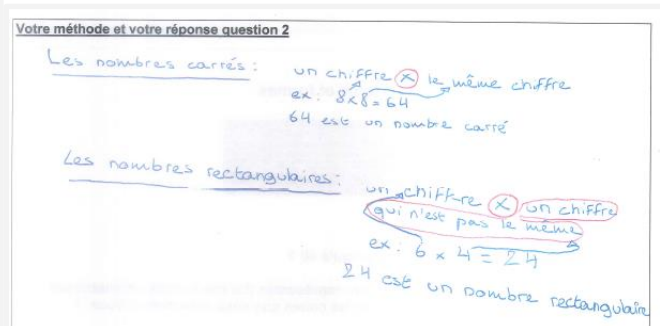 Votre méthode et votre réponse question 2
Les nombres carrés :
un chiffre × le même chiffre
ex : 8×8 = 64
64 est un nombre carré
Les nombres rectangulaires :
un chiffre × un chiffre
qui n'est pas le même
ex : 6 × 4 = 24
24 est un nombre rectangulaire